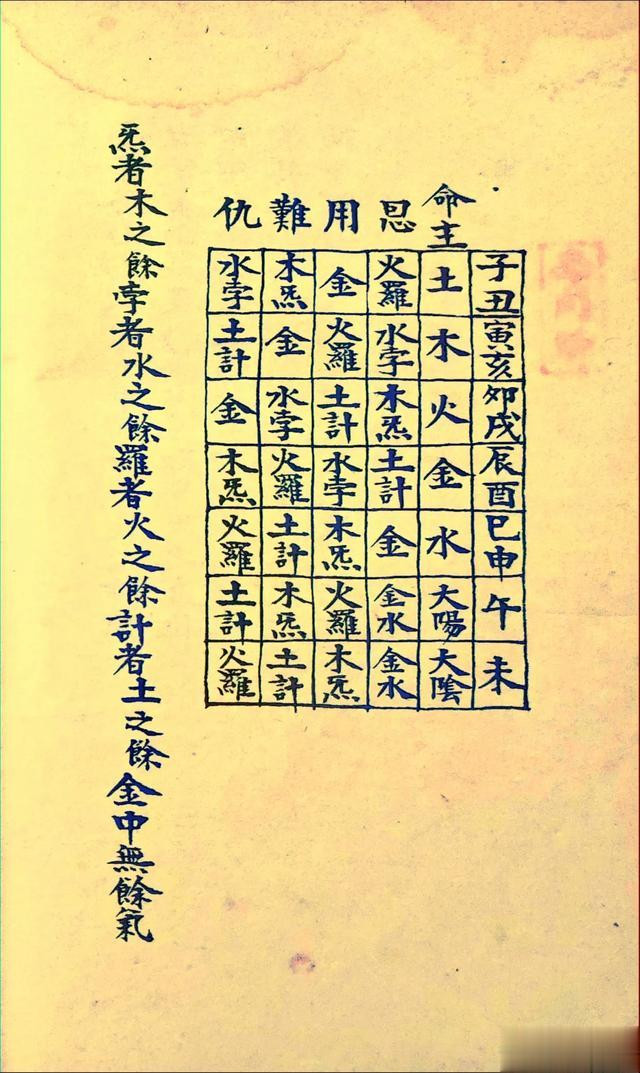 命主 恩 用 難 仇
子丑 土 火羅 金 木炁 水孛
寅亥 木 水孛 火羅 金 土計
卯戌 火 木炁 土計 水孛 金
辰酉 金 土計 水孛 火羅 木炁
巳申 水 金 木炁 土計 火羅
午 大陽 金水 火羅 木炁 土計
未 大陰 金水 木炁 土計 火羅
炁者木之餘孛者水之餘羅者火之餘計者土之餘金中無餘氣